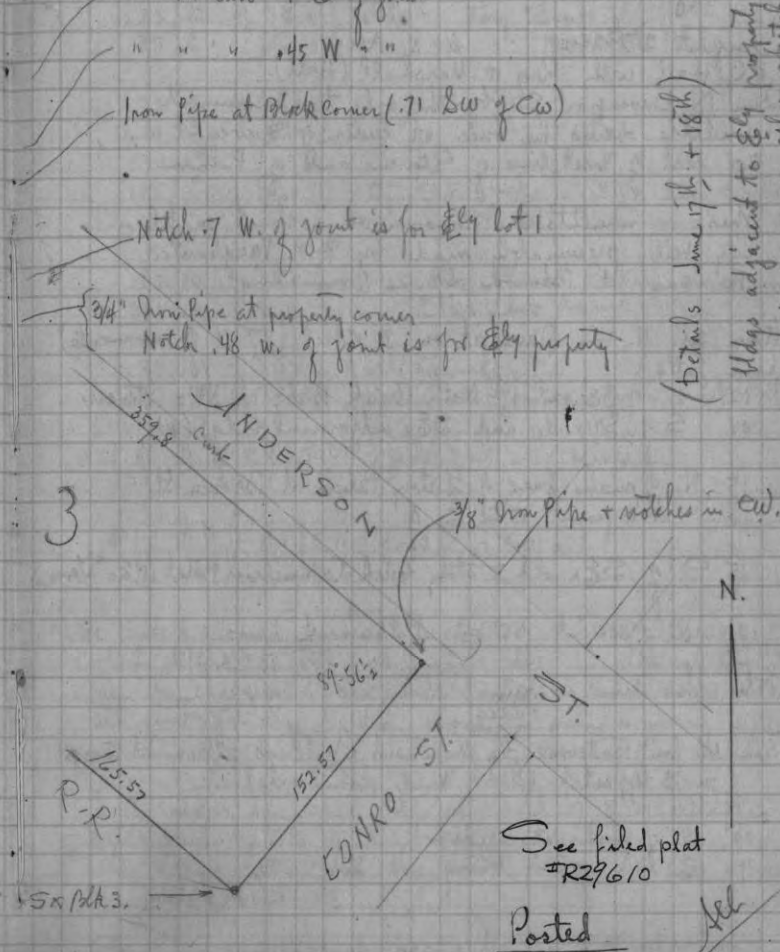 of joint.
" " " .45 W " "
Iron Pipe at Block corner (.71 SW of CW)
Notch .7 W. of joint is for Ely lot 1
3/4" Iron Pipe at property corner
Notch .48 W. of joint is for Ely property
(Details June 17th + 18th)
bldgs adjacent to Ely property
359.8
curb
ANDERSON
3
3/8" Iron Pipe + notches in CW.
N.
89°-56'½
ST.
152.57
CONRO ST.
165.57
R.R.
See filed plat
#R29610
Blk 3.
Posted